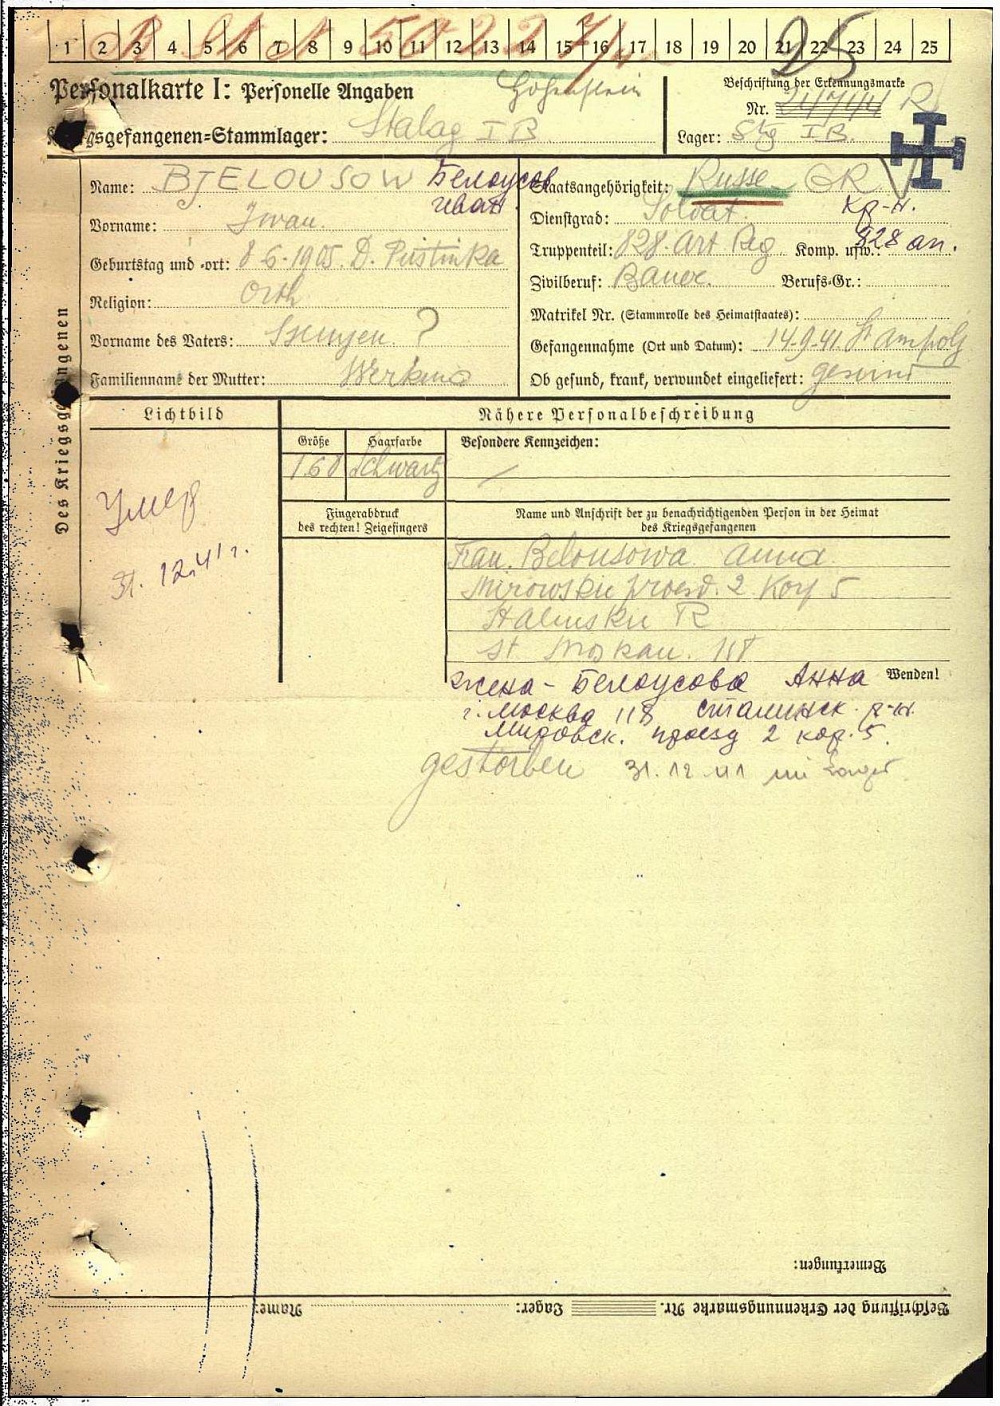 1 2 3 4 5 6 7 8 9 10 11 12 13 14 15 16 17 18 19 20 21 22 23 24 25
25
Personalkarte I: Personelle Angaben
Hohenstein
Kriegsgefangenen=Stammlager: Stalag I B
Beschriftung der Erkennungsmarke
Nr.
R
Lager: Stg I B.
Des Kriegsgefangenen
Name: BJELOUSOW Белоусов
Иван
Vorname: Iwan.
Geburtstag und -ort: 8.6.1905. D. Pustinka
Religion: Orth
Vorname des Vaters: ?
Familienname der Mutter:
Staatsangehörigkeit: Russe GR
Dienstgrad: Soldat. кр-н.
Truppenteil: 828. Art. Reg Komp. usw.: 828 ап.
Zivilberuf: Bauer. Berufs-Gr.:
Matrikel Nr. (Stammrolle des Heimatstaates):
Gefangennahme (Ort und Datum): 14.9.41.
Ob gesund, krank, verwundet eingeliefert: gesund
Lichtbild
Nähere Personalbeschreibung
Größe Haarfarbe Besondere Kennzeichen:
1.60 Schwartz —
Fingerabdruck
des rechten! Zeigefingers
Name und Anschrift der zu benachrichtigenden Person in der Heimat
des Kriegsgefangenen
Умер
31.12.41г.
Frau. Belousowa Anna
Mirowskii proesd. 2 Korp 5
Stalinskii R
St Moskau. 118
Wenden!
жена - Белоусова Анна
г. Москва 118 Сталинск. р-н.
Мировск. проезд 2 кор. 5.
gestorben 31.12.41 im Lager
Bemerkungen:
Beschriftung der Erkennungsmarke Nr. Lager: Name: